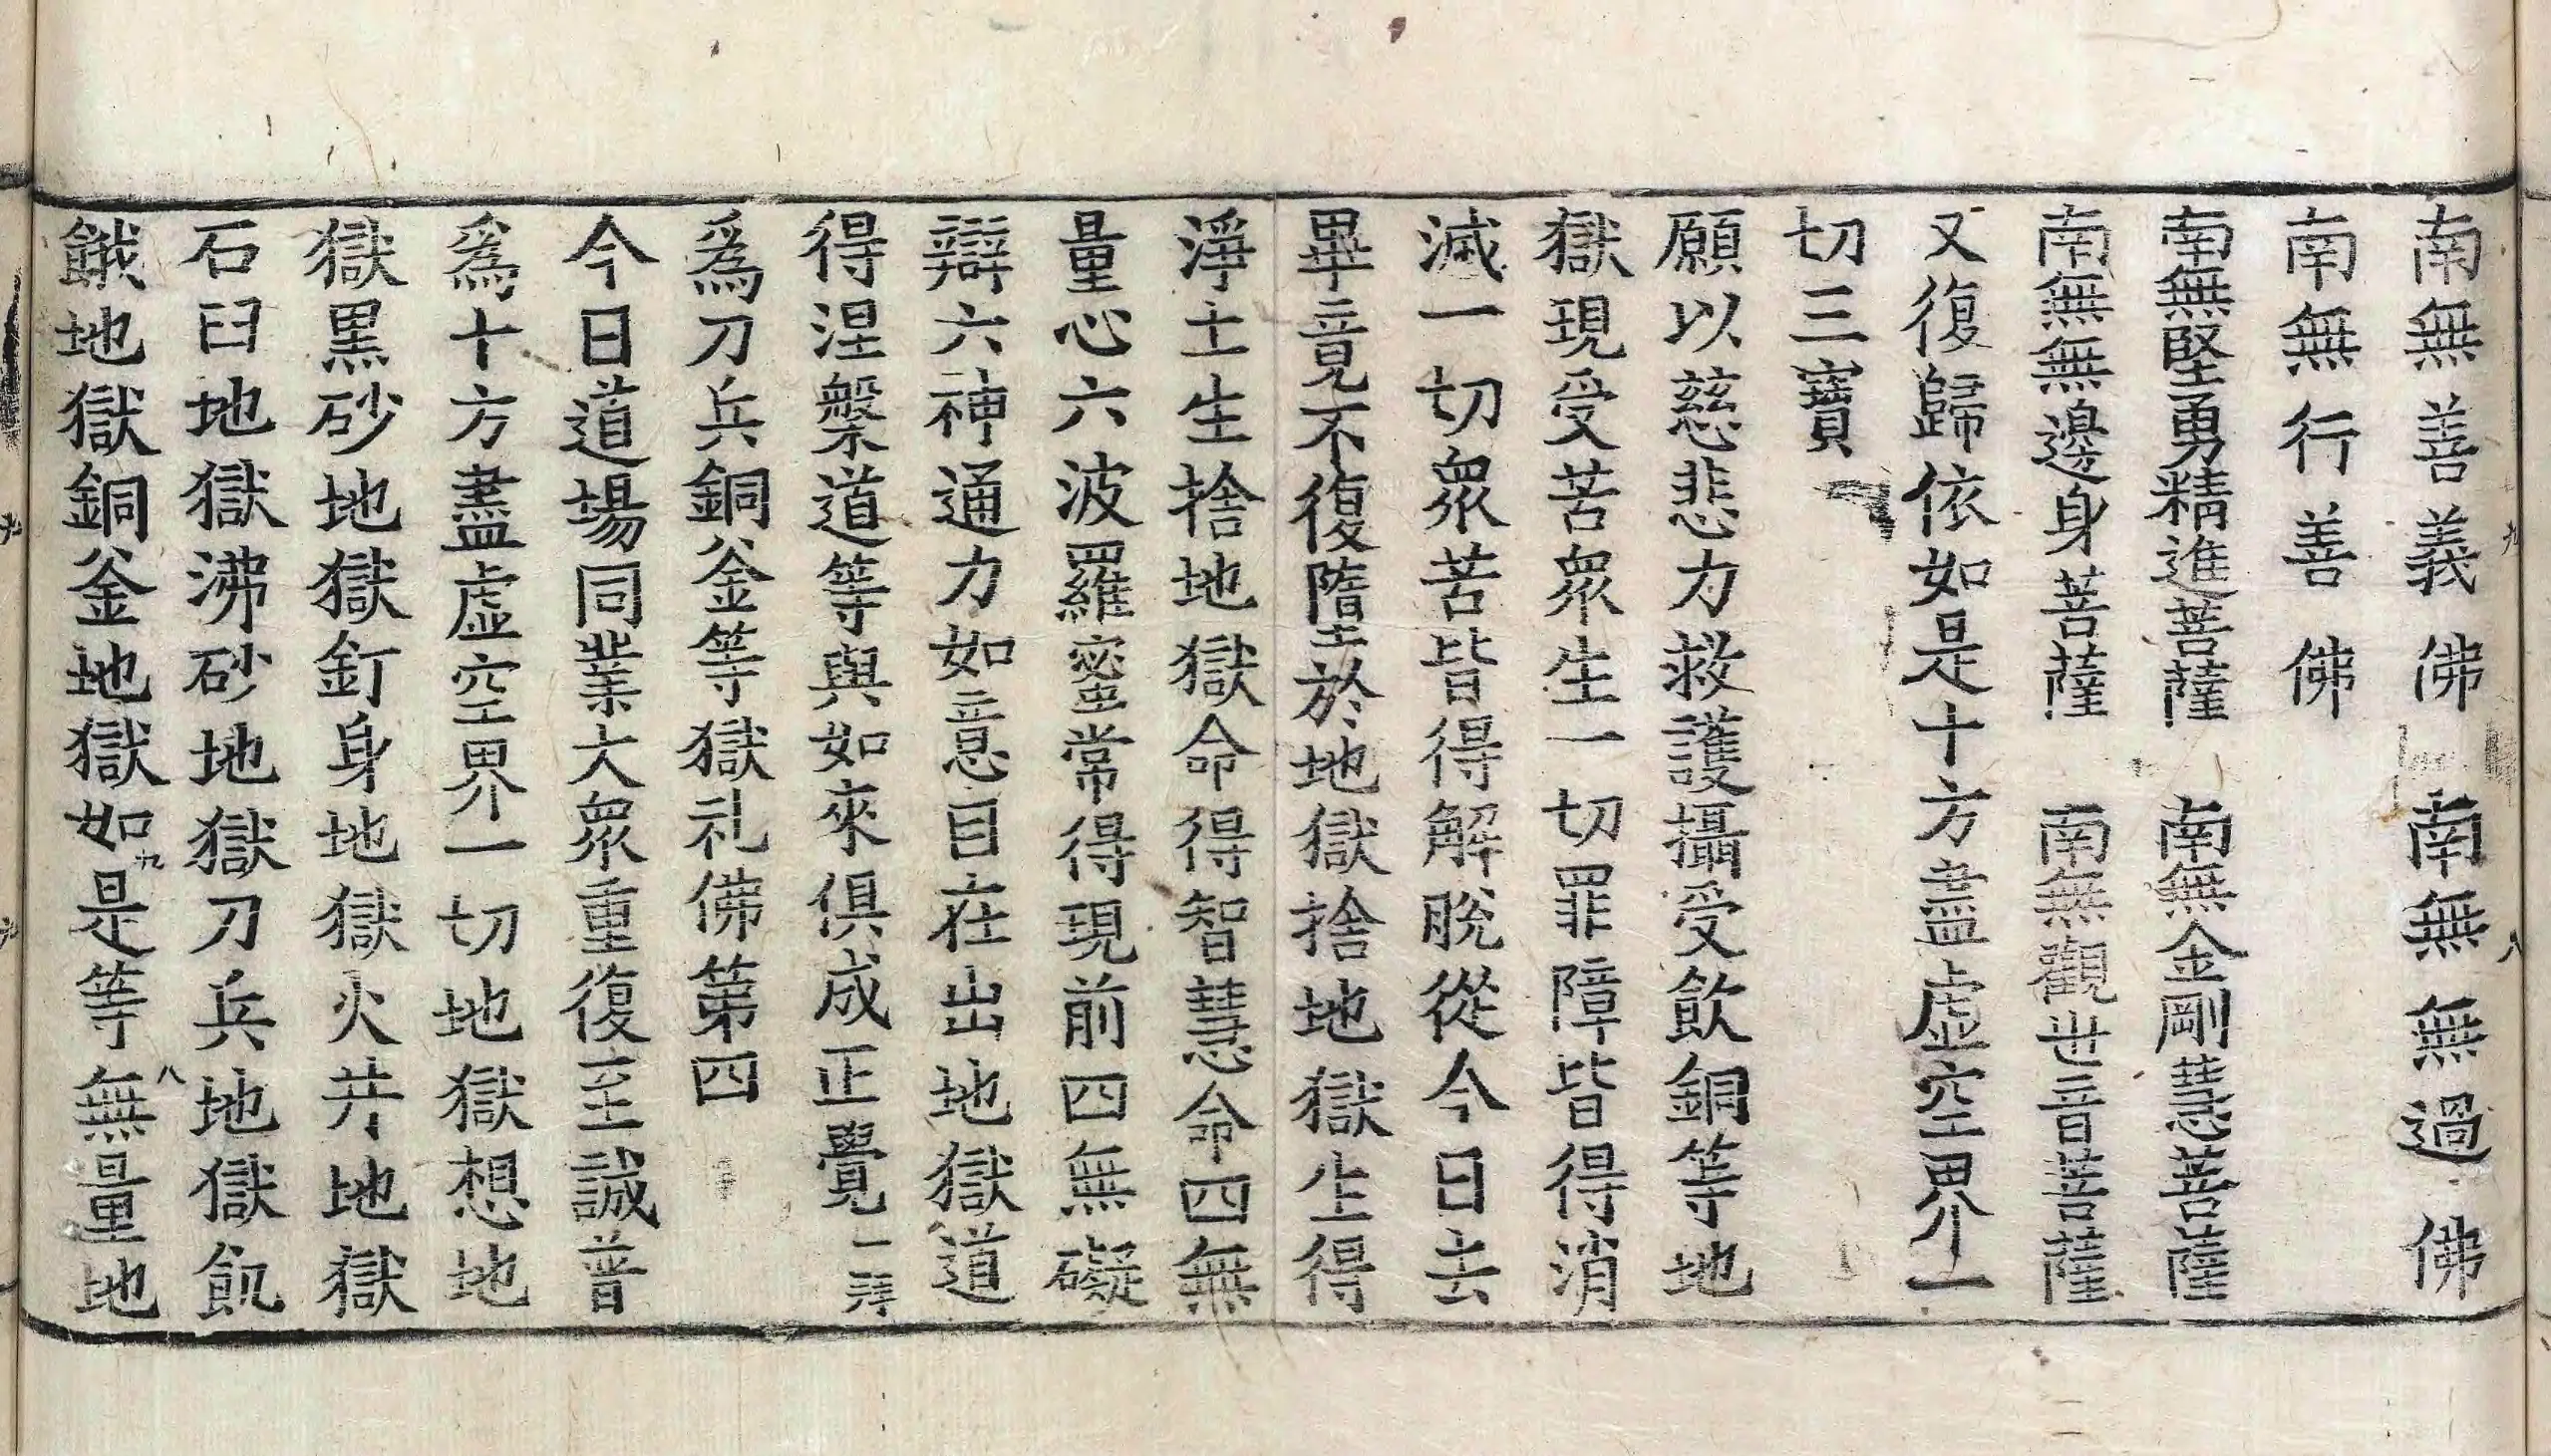 南無善義佛　南無無過佛
南無行善佛
南無堅勇精進菩薩　南無金剛慧菩薩
南無無邊身菩薩　南無觀世音菩薩
又復歸依如是十方盡虛空界一
切三寶
願以慈悲力救護攝受飲銅等地
獄現受苦衆生一切罪障皆得消
滅一切衆苦皆得解脫從今日去
畢竟不復墮於地獄捨地獄生得
淨土生捨地獄命得智慧命四無
量心六波羅蜜常得現前四無礙
辯六神通力如意自在出地獄道
得涅槃道等與如來俱成正覺一拜
爲刀兵銅釜等獄礼佛第四
今日道場同業大衆重復至誠普
爲十方盡虛空界一切地獄想地
獄黑砂地獄釘身地獄火井地獄
石臼地獄沸砂地獄刀兵地獄飢
餓地獄銅釜地獄如是等無量地